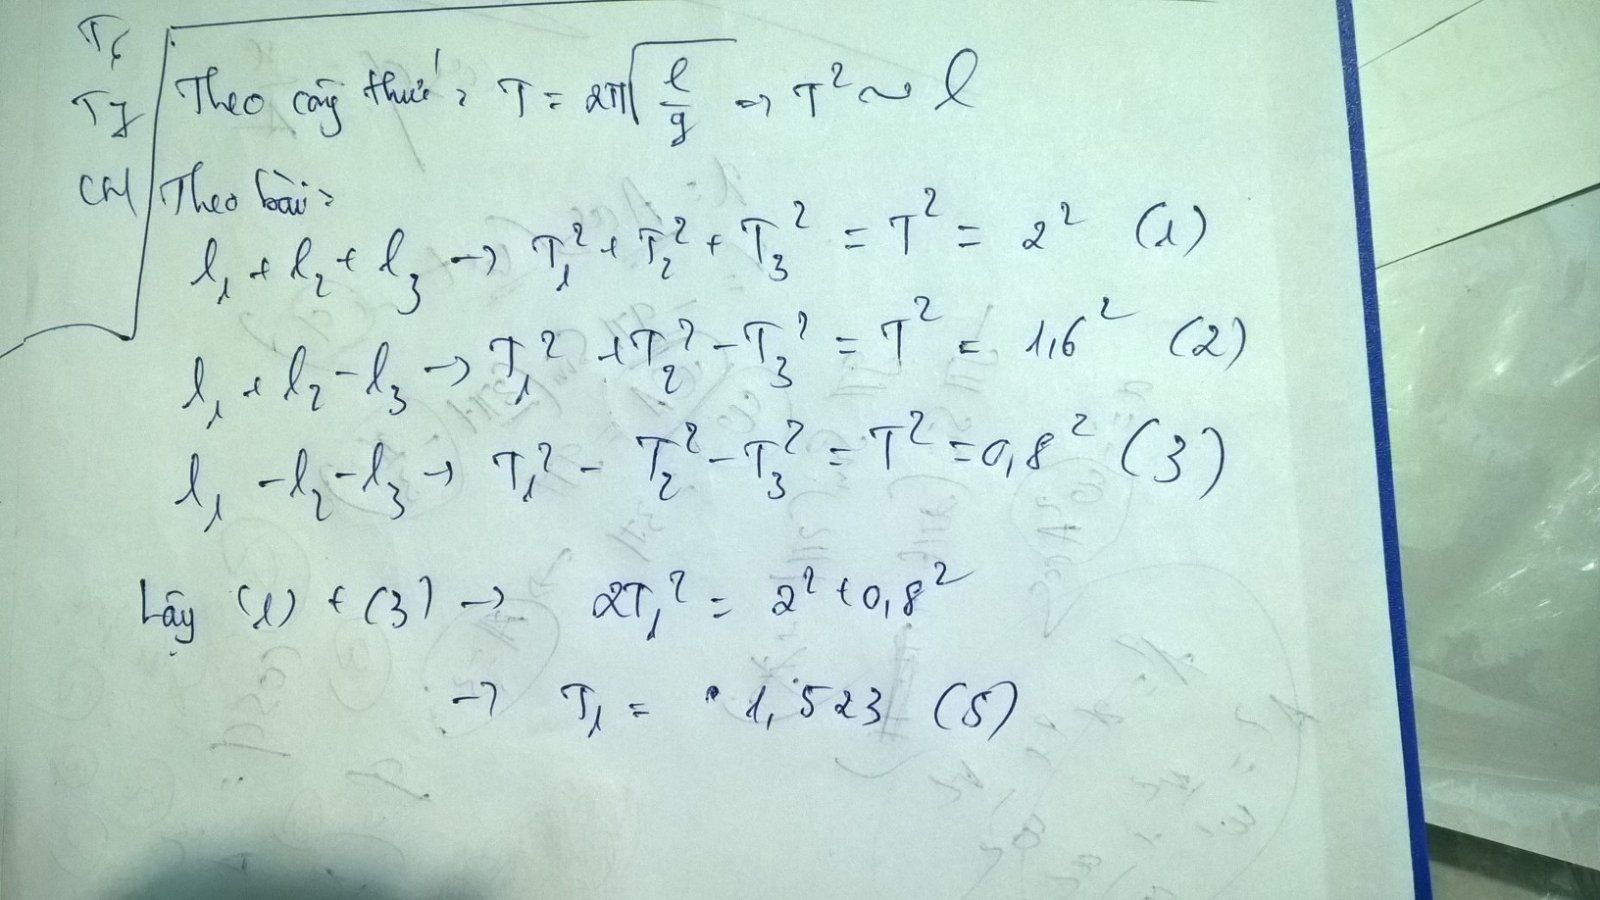 T
Ty
CM
Theo công thức: T = 2π√(l/g) => T² ~ l
Theo bài:
l₁ + l₂ + l₃ → T₁² + T₂² + T₃² = T² = 2² (1)
l₁ + l₂ - l₃ → T₁² + T₂² - T₃² = T² = 1,6² (2)
l₁ - l₂ - l₃ → T₁² - T₂² - T₃² = T² = 0,8² (3)
Lấy (1) + (3) → 2T₁² = 2² + 0,8²
→ T₁ = 1,523 (s)